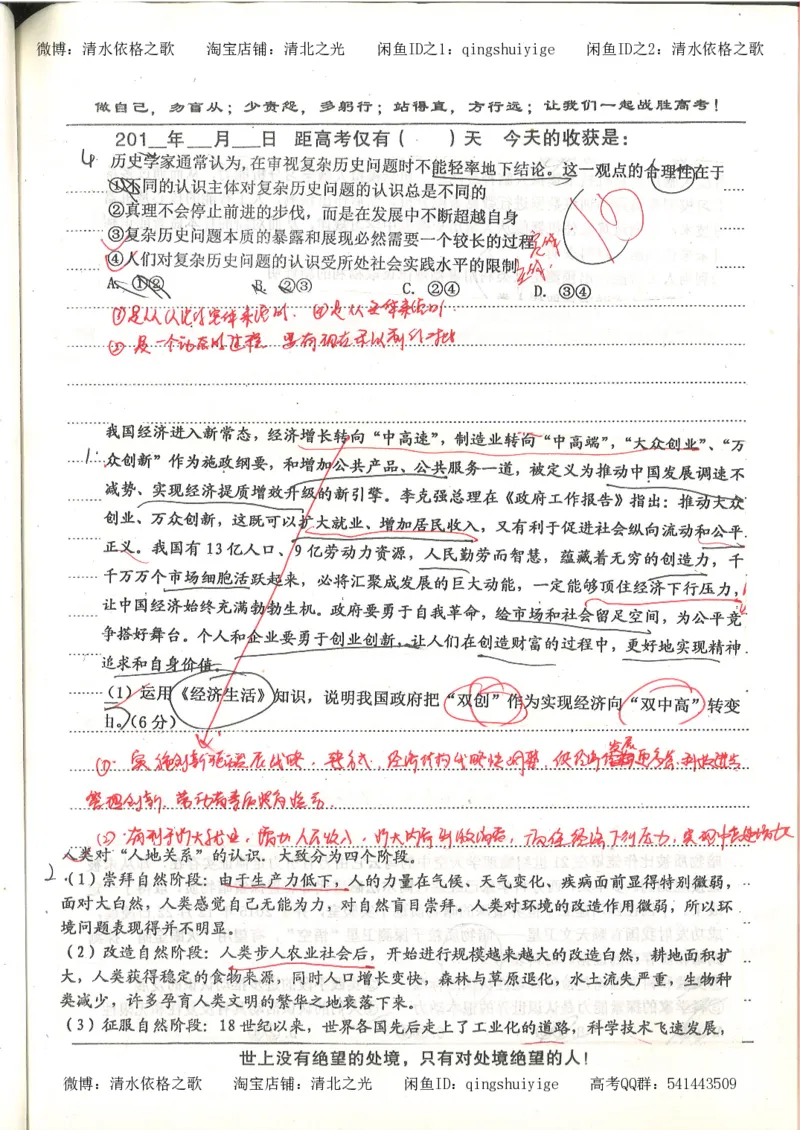 微博：清水依格之歌 淘宝店铺：清北之光 闲鱼ID之1：qingshuiyige 闲鱼ID之2：清水依格之歌
做自己，勿盲从；少责怨，多躬行；站得直，方行远；让我们一起战胜高考！
201__年___月___日 距高考仅有（ ）天 今天的收获是：
4 历史学家通常认为，在审视复杂历史问题时不能轻率地下结论。这一观点的合理性在于
①不同的认识主体对复杂历史问题的认识总是不同的
②真理不会停止前进的步伐，而是在发展中不断超越自身
③复杂历史问题本质的暴露和展现必然需要一个较长的过程
④人们对复杂历史问题的认识受所处社会实践水平的限制
A. ①② B. ②③ C. ②④ D. ③④
我国经济进入新常态，经济增长转向“中高速”，制造业转向“中高端”，“大众创业”、“万
1. 众创新”作为施政纲要，和增加公共产品、公共服务一道，被定义为推动中国发展调速不
减势、实现经济提质增效升级的新引擎。李克强总理在《政府工作报告》指出：推动大众
创业、万众创新，这既可以扩大就业、增加居民收入，又有利于促进社会纵向流动和公平
正义。我国有13亿人口、9亿劳动力资源，人民勤劳而智慧，蕴藏着无穷的创造力，千
千万万个市场细胞活跃起来，必将汇聚成发展的巨大动能，一定能够顶住经济下行压力，
让中国经济始终充满勃勃生机。政府要勇于自我革命，给市场和社会留足空间，为公平竞
争搭好舞台。个人和企业要勇于创业创新，让人们在创造财富的过程中，更好地实现精神
追求和自身价值。
（1）运用《经济生活》知识，说明我国政府把“双创”作为实现经济向“双中高”转变
（6分）
人类对“人地关系”的认识，大致分为四个阶段。
2 （1）崇拜自然阶段：由于生产力低下，人的力量在气候、天气变化、疾病面前显得特别微弱，
面对大白然，人类感觉自己无能为力，对自然盲目崇拜。人类对环境的改造作用微弱，所以环
境问题表现得并不明显。
（2）改造自然阶段：人类步人农业社会后，开始进行规模越来越大的改造白然，耕地面积扩
大，人类获得稳定的食物来源，同时人口增长变快，森林与草原退化，水土流失严重，生物种
类减少，许多孕育人类文明的繁华之地衰落下来.
（3）征服自然阶段：18世纪以来，世界各国先后走上了工业化的道路，科学技术飞速发展，
世上没有绝望的处境，只有对处境绝望的人！
微博：清水依格之歌 淘宝店铺：清北之光 闲鱼ID：qingshuiyige 高考QQ群：541443509